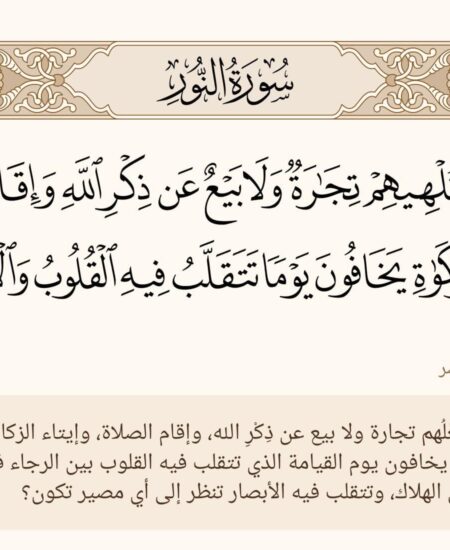 سُورَةُ النُّورِ
تِجَٰرَةٌ وَلَا بَيْعٌ عَن ذِكْرِ ٱللَّهِ
يَخَافُونَ يَوْمًا تَتَقَلَّبُ فِيهِ ٱلْقُلُوبُ
تجارة ولا بيع عن ذِكْرِ الله، وإقام الصلاة، وإيتاء
يخافون يوم القيامة الذي تتقلب فيه القلوب بين الرجاء
الهلاك، وتتقلب فيه الأبصار تنظر إلى أي مصير تكون؟